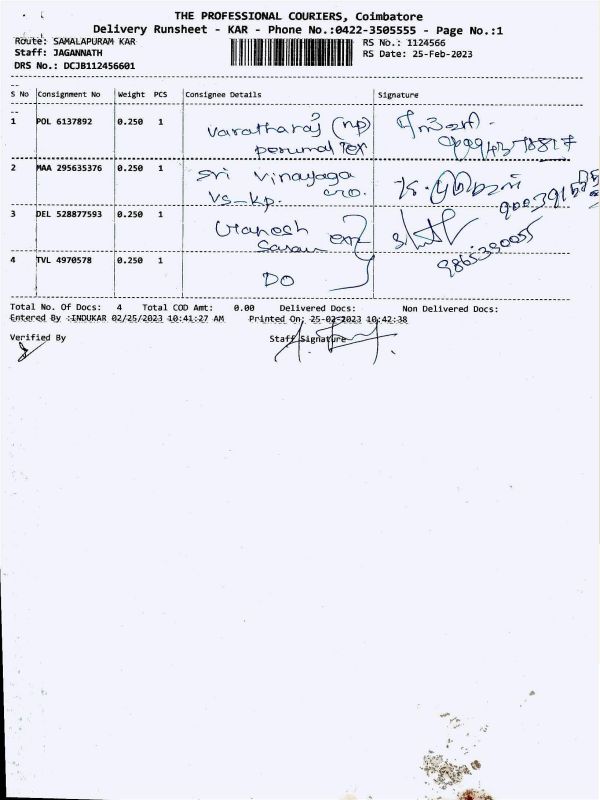 THE PROFESSIONAL COURIERS, Coimbatore
Delivery Runsheet - KAR - Phone No.:0422-3505555 - Page No.:1
Route: SAMALAPURAM KAR
RS No.: 1124566
Staff: JAGANNATH
RS Date: 25-Feb-2023
DRS No.: DCJB112456601
S No Consignment No Weight PCS Consignee Details Signature
1 POL 6137892 0.250 1 Varatharaj (np)
perumal Tex
2 MAA 295635376 0.250 1 Sri Vinayaga
VS-Kp.
3 DEL 528877593 0.250 1 Ganesh
9865390055
4 TVL 4970578 0.250 1 DO
Total No. Of Docs: 4 Total COD Amt: 0.00 Delivered Docs: Non Delivered Docs:
Entered By :INDUKAR 02/25/2023 10:41:27 AM Printed On: 25-02-2023 10:42:38
Verified By Staff Signature